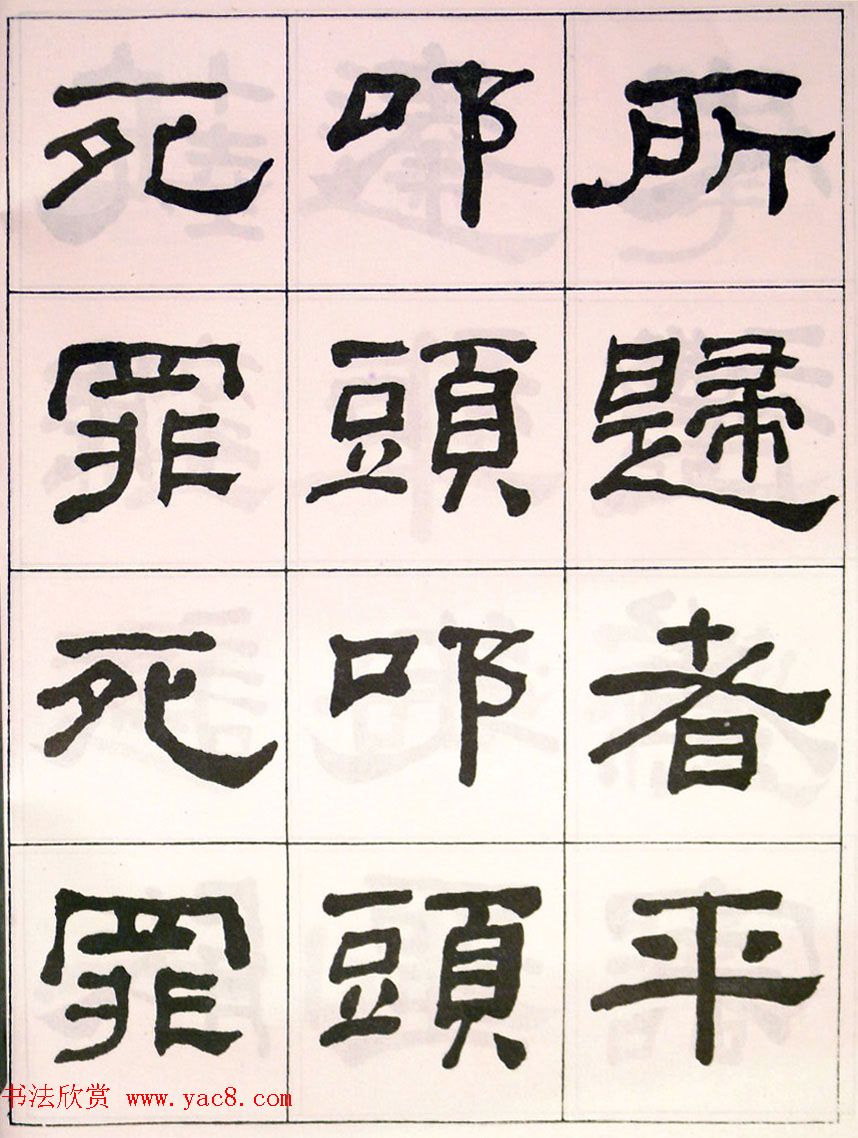 所歸者平
叩頭叩頭
死罪死罪
书法欣赏 www.yac8.com